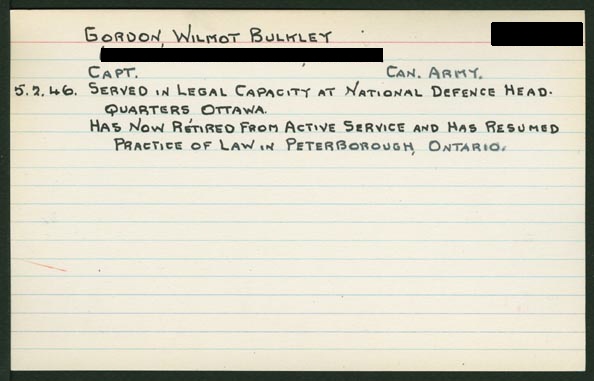 GORDON, WILMOT BULKLEY
CAPT. CAN. ARMY.
5.2.46. SERVED IN LEGAL CAPACITY AT NATIONAL DEFENCE HEAD-
QUARTERS OTTAWA.
HAS NOW RETIRED FROM ACTIVE SERVICE AND HAS RESUMED
PRACTICE OF LAW IN PETERBOROUGH, ONTARIO.